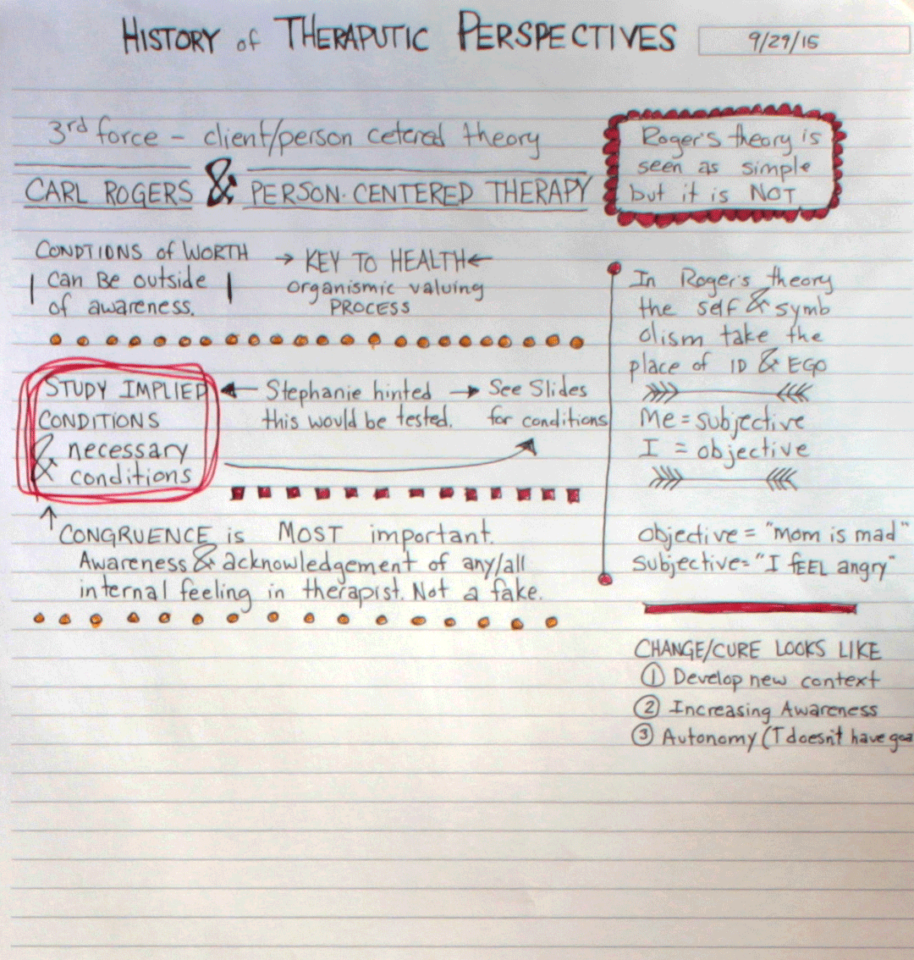 HISTORY of THERAPUTIC PERSPECTIVES
9/29/15
3rd force - client/person cetered theory
CARL ROGERS & PERSON-CENTERED THERAPY
Roger's theory is
seen as simple
but it is NOT
CONDTIONS of WORTH
can Be outside
of awareness.
→ KEY TO HEALTH ←
organismic valuing
PROCESS
STUDY IMPLIED
CONDITIONS
& necessary
conditions
← Stephanie hinted → See Slides
this would be tested. for conditions
↑ CONGRUENCE is MOST important.
Awareness & acknowledgement of any/all
internal feeling in therapist. Not a fake.
In Roger's theory
the self & symb
olism take the
place of ID & EGO
Me = subjective
I = objective
objective = "Mom is mad"
Subjective = "I fEEL angry"
CHANGE/CURE LOOKS LIKE
① Develop new context
② Increasing Awareness
③ Autonomy (T doesn't have goa